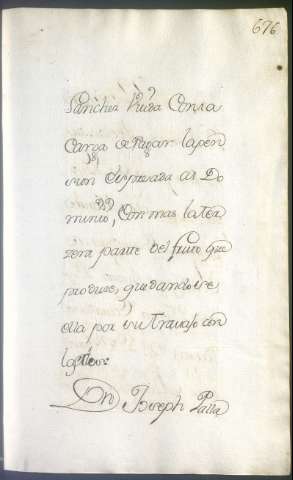 676
Sanchez Viuda Con la
Carga de Pagar la pen
sion expresada al Do
minio, Con mas la ter
zera parte del fruto, que
produze, quedando se
ella por su travajo con
las
Dn Joseph Palla